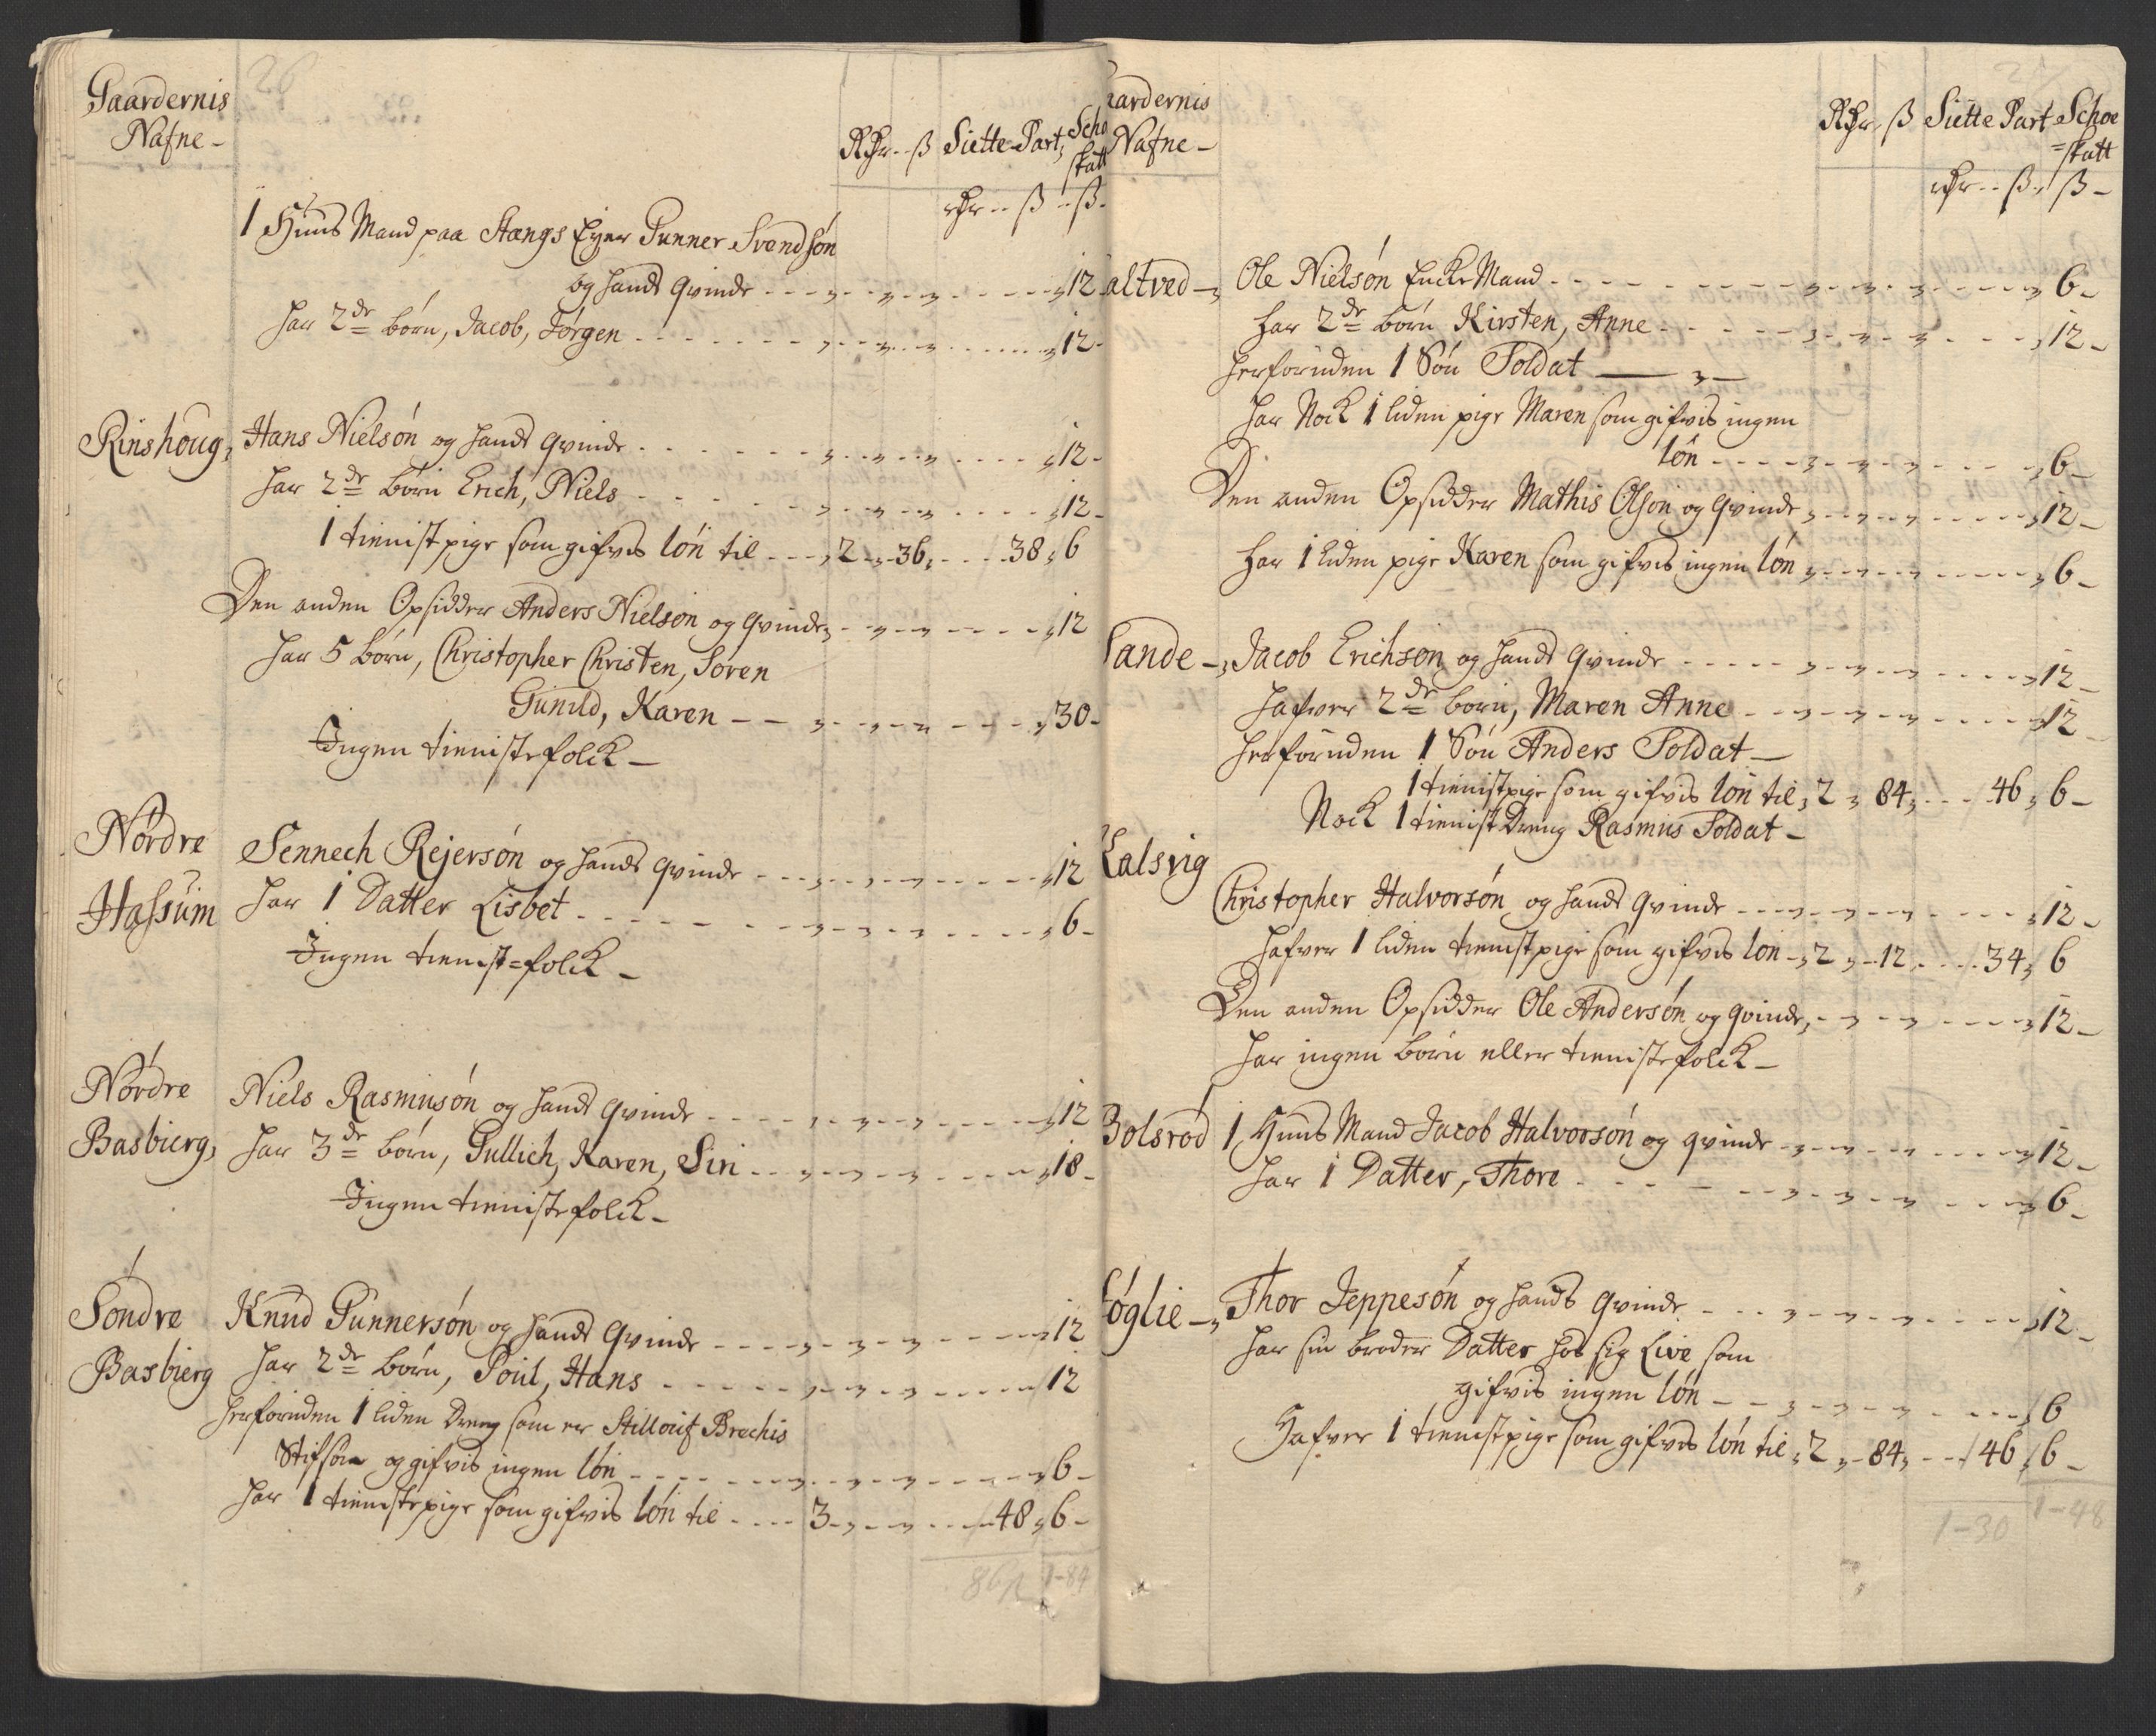 26
Gaardernis
Nafne -
Rdr. ß Siette Part, Scho
skatt
rdr ß ß
1 Huus Mand paa Stangs Eyer Gunner Svendsøn
og hands qvinde 12
har 2de børn, Jacob, Jørgen 12
Rinshoug, Hans Nielsøn og hands qvinde 12
har 2de børn Erich, Niels 12
1 tienistpige som gifvis løn til 2 36 38 6
Den anden Opsidder Anders Nielsøn og qvinde 12
har 5 børn, Christopher Christen, Søren
Gunild, Karen 30
Ingen tienistefolck
Nórdre Sennech Rejersón og hands qvinde 12
Hassum har 1 Datter Lisbet 6
Ingen tienist=folck
Nórdre Niels Rasmusón og hands qvinde 12
Basbierg, har 3de børn, Gullich, Karen, Siri 18
Ingen tienistefolck
Sóndre Knud Gunnersón og hands qvinde 12
Basbierg har 2de børn, Poul, Hans 12
herforuden 1 liden Dreng som er Brechis
Stifsøn og gifvis ingen løn 6
har 1 tienistepige som gifvis løn til 3 48 6
86 1-84
aardernis
Nafne -
Rdr ß Siette Part Schoe
=skatt
rdr ß ß
altved Ole Nielsón Encke Mand 6
har 2de børn Kirsten, Anne 12
herforuden 1 Søn Soldat
har Nock 1 liden pige Maren som gifvis ingen
løn 6
Den anden Opsidder Mathis Olson og qvinde 12
har 1 liden pige Karen som gifvis ingen løn 6
Sande Jacob Erichsøn og hands qvinde 12
hafver 2de børn, Maren Anne 12
herforuden 1 Søn Anders Soldat
1 tienistpige som gifvis løn til 2 84 46 6
Nock 1 tienist Dreng Rasmus Soldat
alsvig
Christopher Halvorsøn og hands qvinde 12
hafver 1 liden tienistpige som gifvis løn 2 12 34 6
Den anden Opsidder Ole Andersøn og qvinde, 12
har ingen børn eller tienistefolck
Bolsród 1 Huus Mand Jacob Halvorsøn og qvinde 12
har 1 Datter, Thore 6
óglie Thor Jeppesón og hands qvinde 12
har sin broder Datter hos sig Live som
gifvis ingen løn 6
Hafver 1 tienistpige som gifvis løn til 2 84 46 6
1-30 1-48